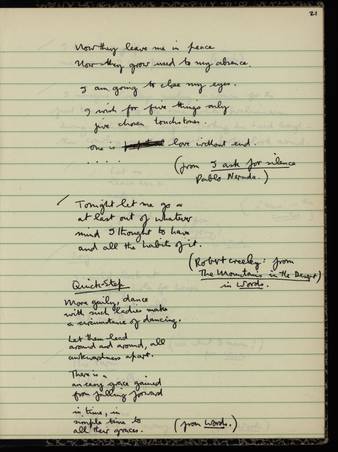 21
Now they leave me in peace
Now they grow used to my absence.
I am going to close my eyes.
I wish for five things only
five chosen touchstones.
one is love without end.
. . . . .
(from I ask for silence
Pablo Neruda.)
Tonight let me go
at last out of whatever
mind I thought to have
and all the habits of it.
(Robert Creeley: from
The Mountains in the Desert)
in Words.
Quick-Step
More gaily, dance
with such ladies make
a circumstance of dancing.
Let them lead
around and around, all
awkwardness apart.
There is
an easy grace gained
from falling forward
in time, in
simple time to
all their graces.
(from Words.)